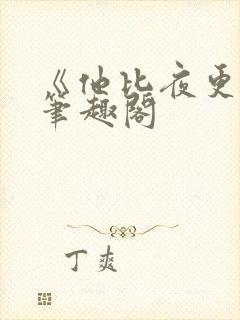 《他比夜更
笔趣阁
丁爽